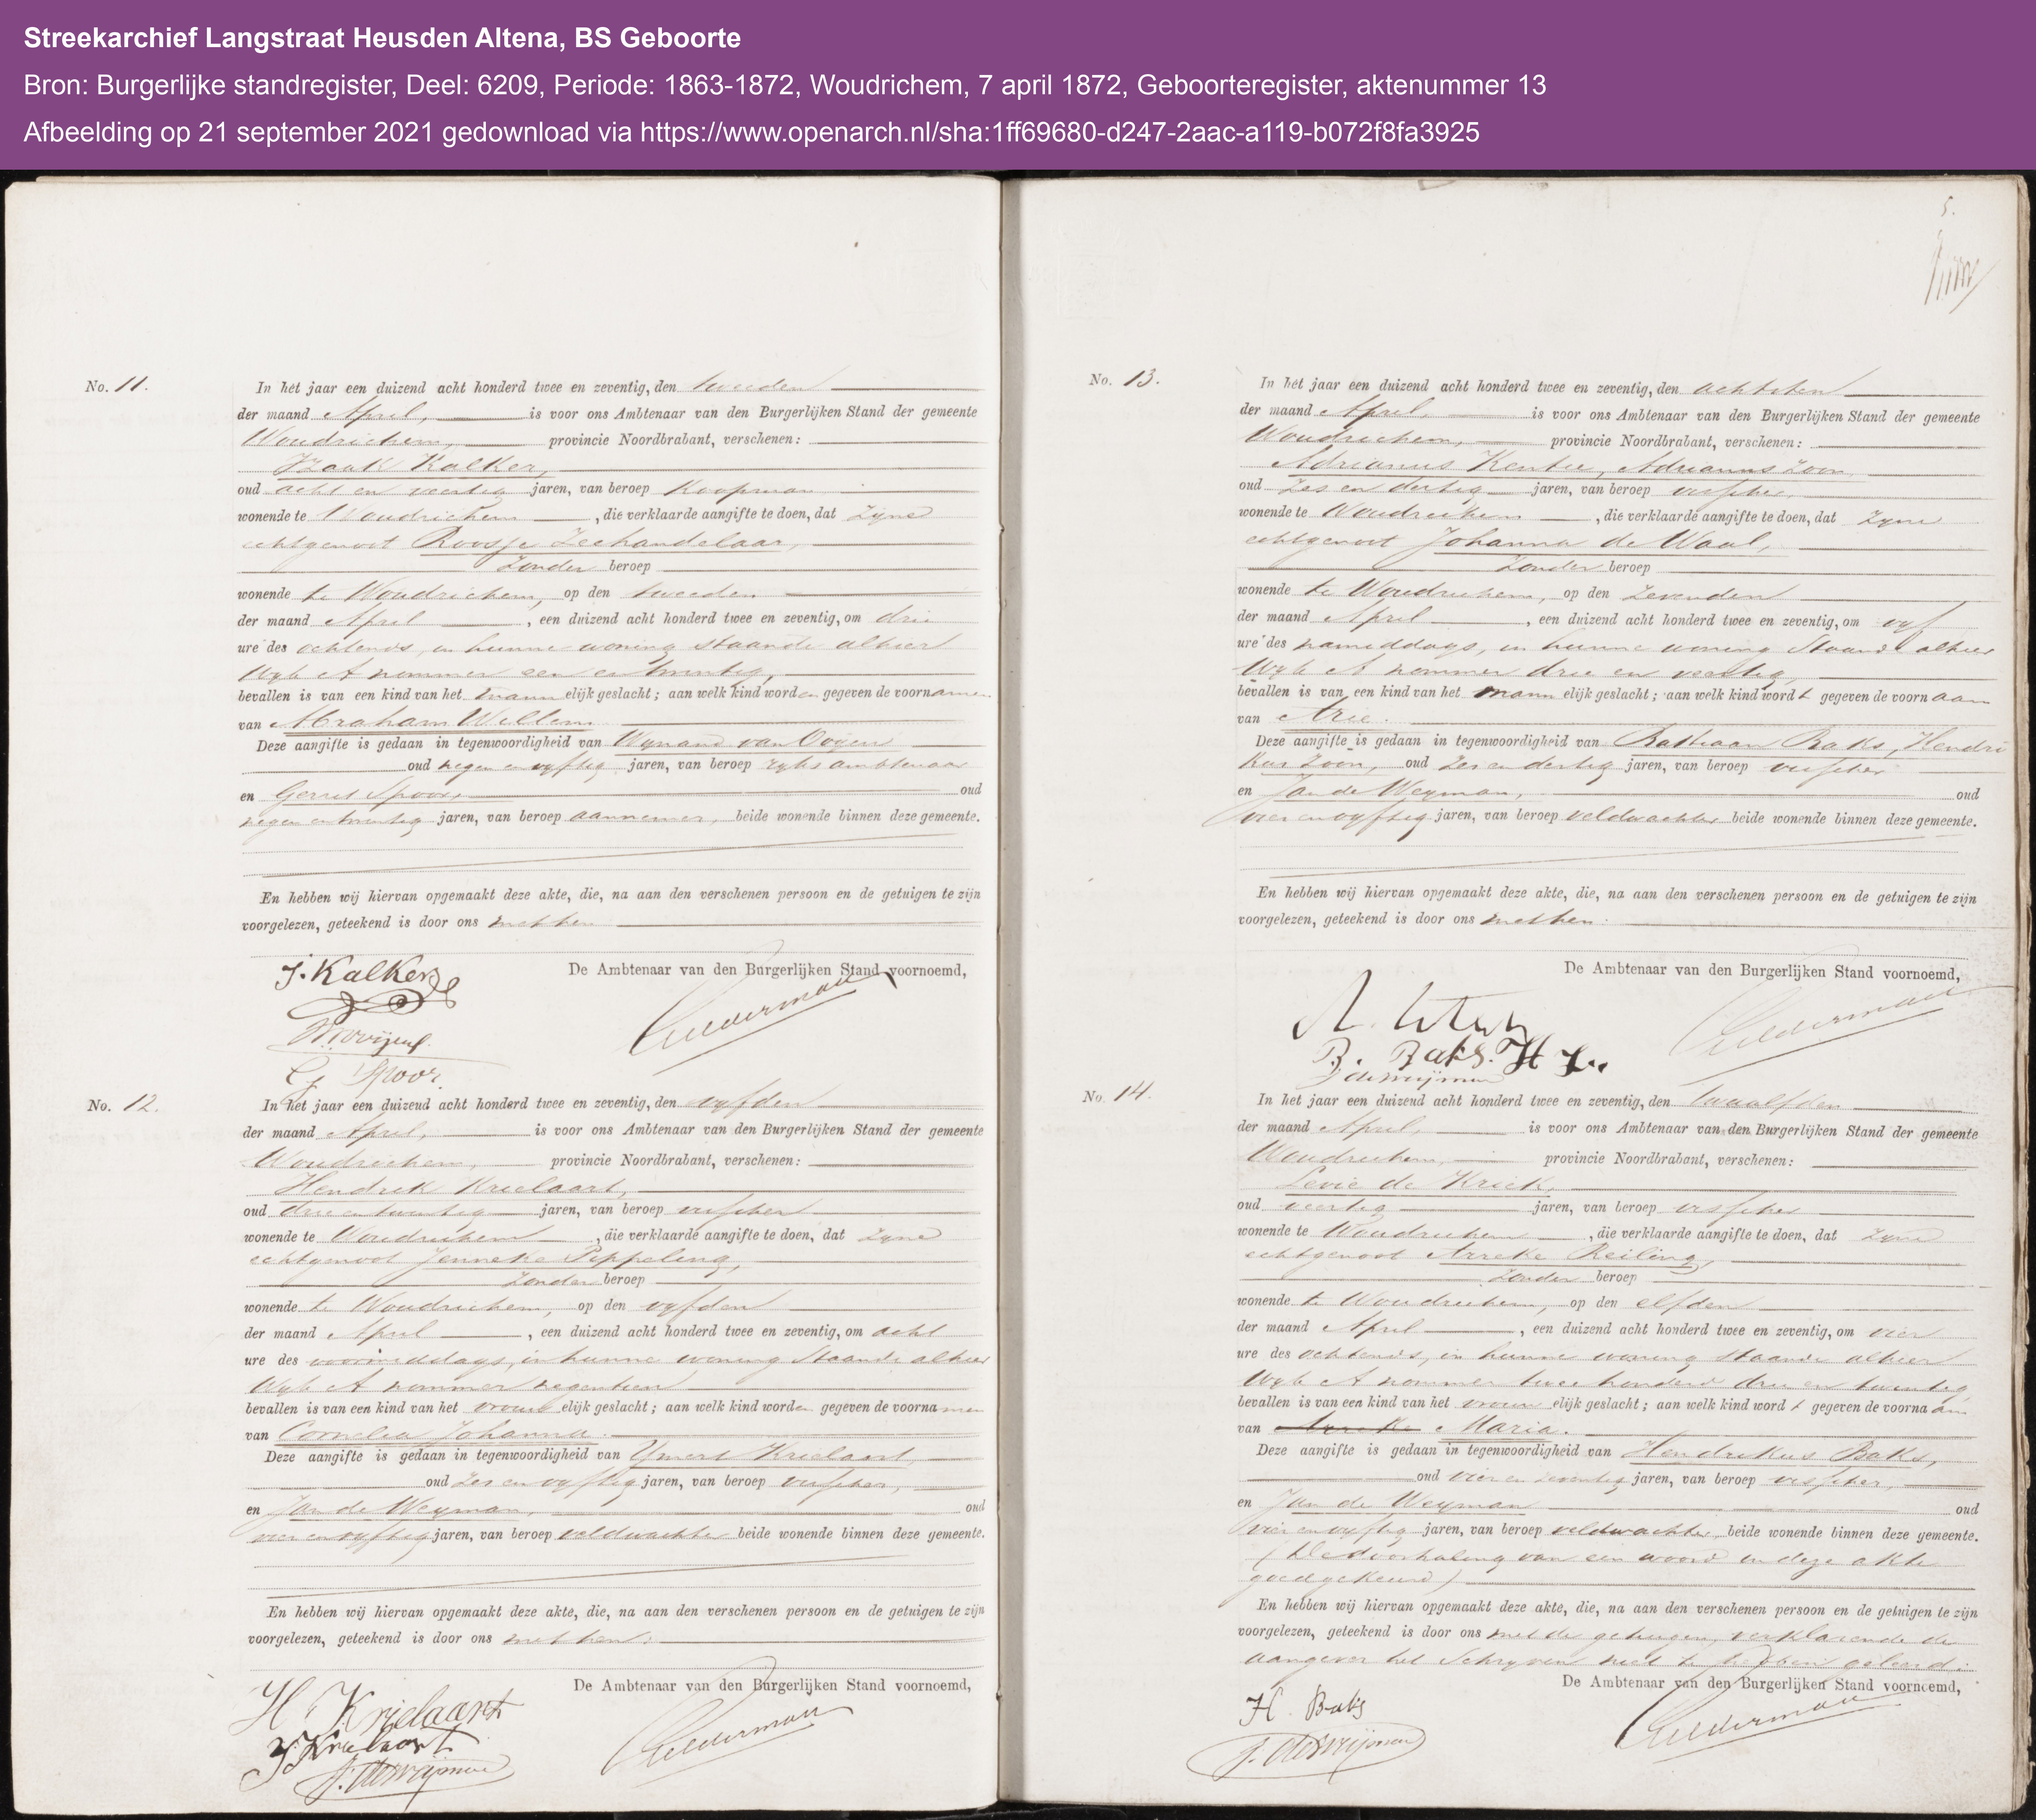 Streekarchief Langstraat Heusden Altena, BS Geboorte
Bron: Burgerlijke standregister, Deel: 6209, Periode: 1863-1872, Woudrichem, 7 april 1872, Geboorteregister, aktenummer 13
Afbeelding op 21 september 2021 gedownload via https://www.openarch.nl/sha:1ff69680-d247-2aac-a119-b072f8fa3925
No. 11.
In het jaar een duizend acht honderd twee en zeventig, den tweeden
der maand April, is voor ons Ambtenaar van den Burgerlijken Stand der gemeente
Woudrichem, provincie Noordbrabant, verschenen:
Izaak Kalker,
oud acht en veertig jaren, van beroep Koopman
wonende te Woudrichem, die verklaarde aangifte te doen, dat zijne
echtgenoot Roosje Zeehandelaar,
zonder beroep
wonende te Woudrichem, op den tweeden
der maand April, een duizend acht honderd twee en zeventig, om drie
ure des ochtends, in hunne woning staande alhier
Wyk A nommer een en twintig,
bevallen is van een kind van het mannelijk geslacht; aan welk kind worden gegeven de voornamen
van Abraham Willem
Deze aangifte is gedaan in tegenwoordigheid van Wynand van Ooijen
oud negen en vyftig jaren, van beroep ryks ambtenaar
en Gerrit Spoor, oud
negen en twintig jaren, van beroep aannemer, beide wonende binnen deze gemeente.
En hebben wij hiervan opgemaakt deze akte, die, na aan den verschenen persoon en de getuigen te zijn
voorgelezen, geteekend is door ons met hen
De Ambtenaar van den Burgerlijken Stand voornoemd,
J. Kalker
Gelderman
G Spoor.
No. 12.
In het jaar een duizend acht honderd twee en zeventig, den vyfden
der maand April, is voor ons Ambtenaar van den Burgerlijken Stand der gemeente
Woudrichem, provincie Noordbrabant, verschenen:
Hendrik Krielaart,
oud drie en twintig jaren, van beroep visscher
wonende te Woudrichem, die verklaarde aangifte te doen, dat zyne
echtgenoot Jenneke Peppeling,
zonder beroep
wonende te Woudrichem, op den vyfden
der maand April, een duizend acht honderd twee en zeventig, om acht
ure des voormiddags, in hunne woning staande alhier
Wyk A nommer negentien
bevallen is van een kind van het vrouwelijk geslacht; aan welk kind worden gegeven de voornamen
van Cornelia Johanna.
Deze aangifte is gedaan in tegenwoordigheid van Ymert Krielaart,
oud zes en vyftig jaren, van beroep visscher,
en Jan de Weyman, oud
vier en vyftig jaren, van beroep veldwachter beide wonende binnen deze gemeente.
En hebben wij hiervan opgemaakt deze akte, die, na aan den verschenen persoon en de getuigen te zijn
voorgelezen, geteekend is door ons met hen.
De Ambtenaar van den Burgerlijken Stand voornoemd,
H Krielaart
Y Krielaart
J. deWeijman
Gelderman
5.
No. 13.
In het jaar een duizend acht honderd twee en zeventig, den achtsten
der maand April, is voor ons Ambtenaar van den Burgerlijken Stand der gemeente
Woudrichem, provincie Noordbrabant, verschenen:
Adrianus Kentie, Adrianus zoon
oud zes en dertig jaren, van beroep visscher,
wonende te Woudrichem, die verklaarde aangifte te doen, dat zyne
echtgenoot Johanna de Waal,
zonder beroep
wonende te Woudrichem, op den zevenden
der maand April, een duizend acht honderd twee en zeventig, om vyf
ure des namiddags, in hunne woning staande alhier
Wyk A nommer drie en veertig,
bevallen is van een kind van het mannelijk geslacht; aan welk kind wordt gegeven de voornaam
van Arie.
Deze aangifte is gedaan in tegenwoordigheid van Bastiaan Baks, Hendri
kus zoon, oud zes en dertig jaren, van beroep visscher
en Jan de Weyman, oud
vier en vyftig jaren, van beroep veldwachter beide wonende binnen deze gemeente.
En hebben wij hiervan opgemaakt deze akte, die, na aan den verschenen persoon en de getuigen te zijn
voorgelezen, geteekend is door ons met hen.
De Ambtenaar van den Burgerlijken Stand voornoemd,
B. Baks. H
J deWeijman
Gelderman
No. 14.
In het jaar een duizend acht honderd twee en zeventig, den twaalfden
der maand April, is voor ons Ambtenaar van den Burgerlijken Stand der gemeente
Woudrichem, provincie Noordbrabant, verschenen:
Levie de Kriek,
oud veertig jaren, van beroep visscher
wonende te Woudrichem, die verklaarde aangifte te doen, dat zyne
echtgenoot Arreke Reiling,
zonder beroep
wonende te Woudrichem, op den elfden
der maand April, een duizend acht honderd twee en zeventig, om vier
ure des ochtends, in hunne woning staande alhier
Wyk A nommer twee honderd drie en twintig,
bevallen is van een kind van het vrouwelijk geslacht; aan welk kind wordt gegeven de voornaam
van Maria.
Deze aangifte is gedaan in tegenwoordigheid van Hendrikus Baks,
oud vier en zeventig jaren, van beroep visscher,
en Jan de Weyman oud
vier en vyftig jaren, van beroep veldwachter beide wonende binnen deze gemeente.
(De doorhaling van een woord in deze akte
goedgekeurd)
En hebben wij hiervan opgemaakt deze akte, die, na aan den verschenen persoon en de getuigen te zijn
voorgelezen, geteekend is door ons met de getuigen, verklarende de
aangever het schryven niet te hebben geleerd.
De Ambtenaar van den Burgerlijken Stand voornoemd,
H. Baks
J. deWeijman
Gelderman